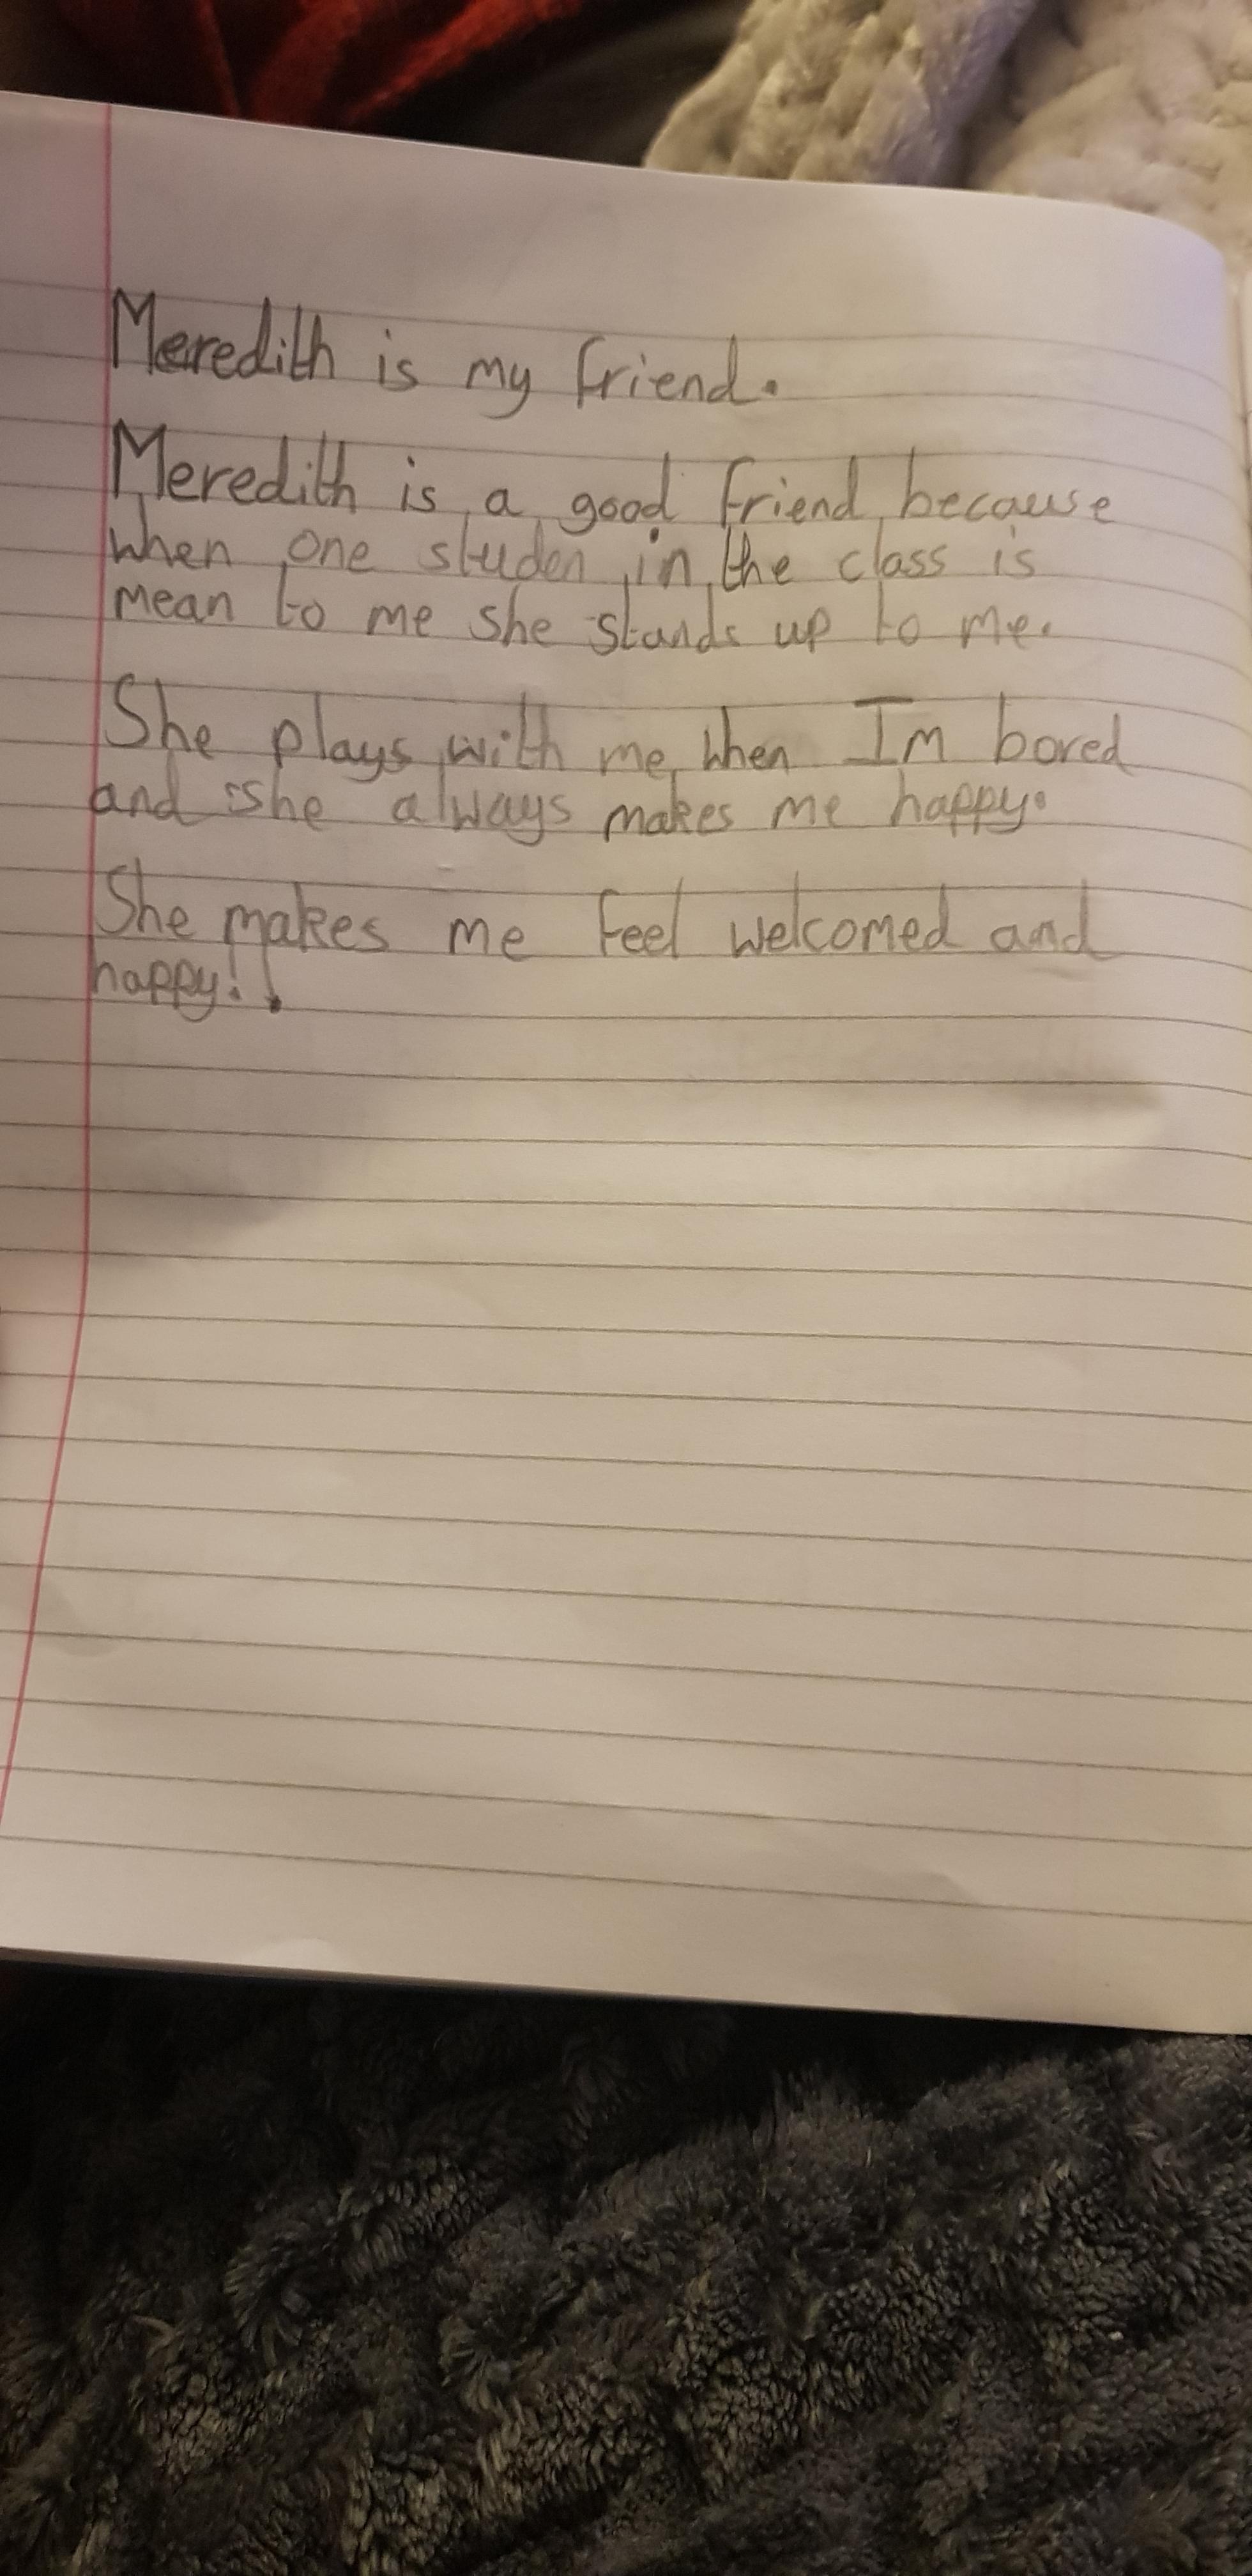 Meredith is my friend.
Meredith is a good friend because
when one studen in the class is
mean to me she stands up to me.
She plays with me when Im bored
and she always makes me happy.
She makes me feel welcomed and
happy!!